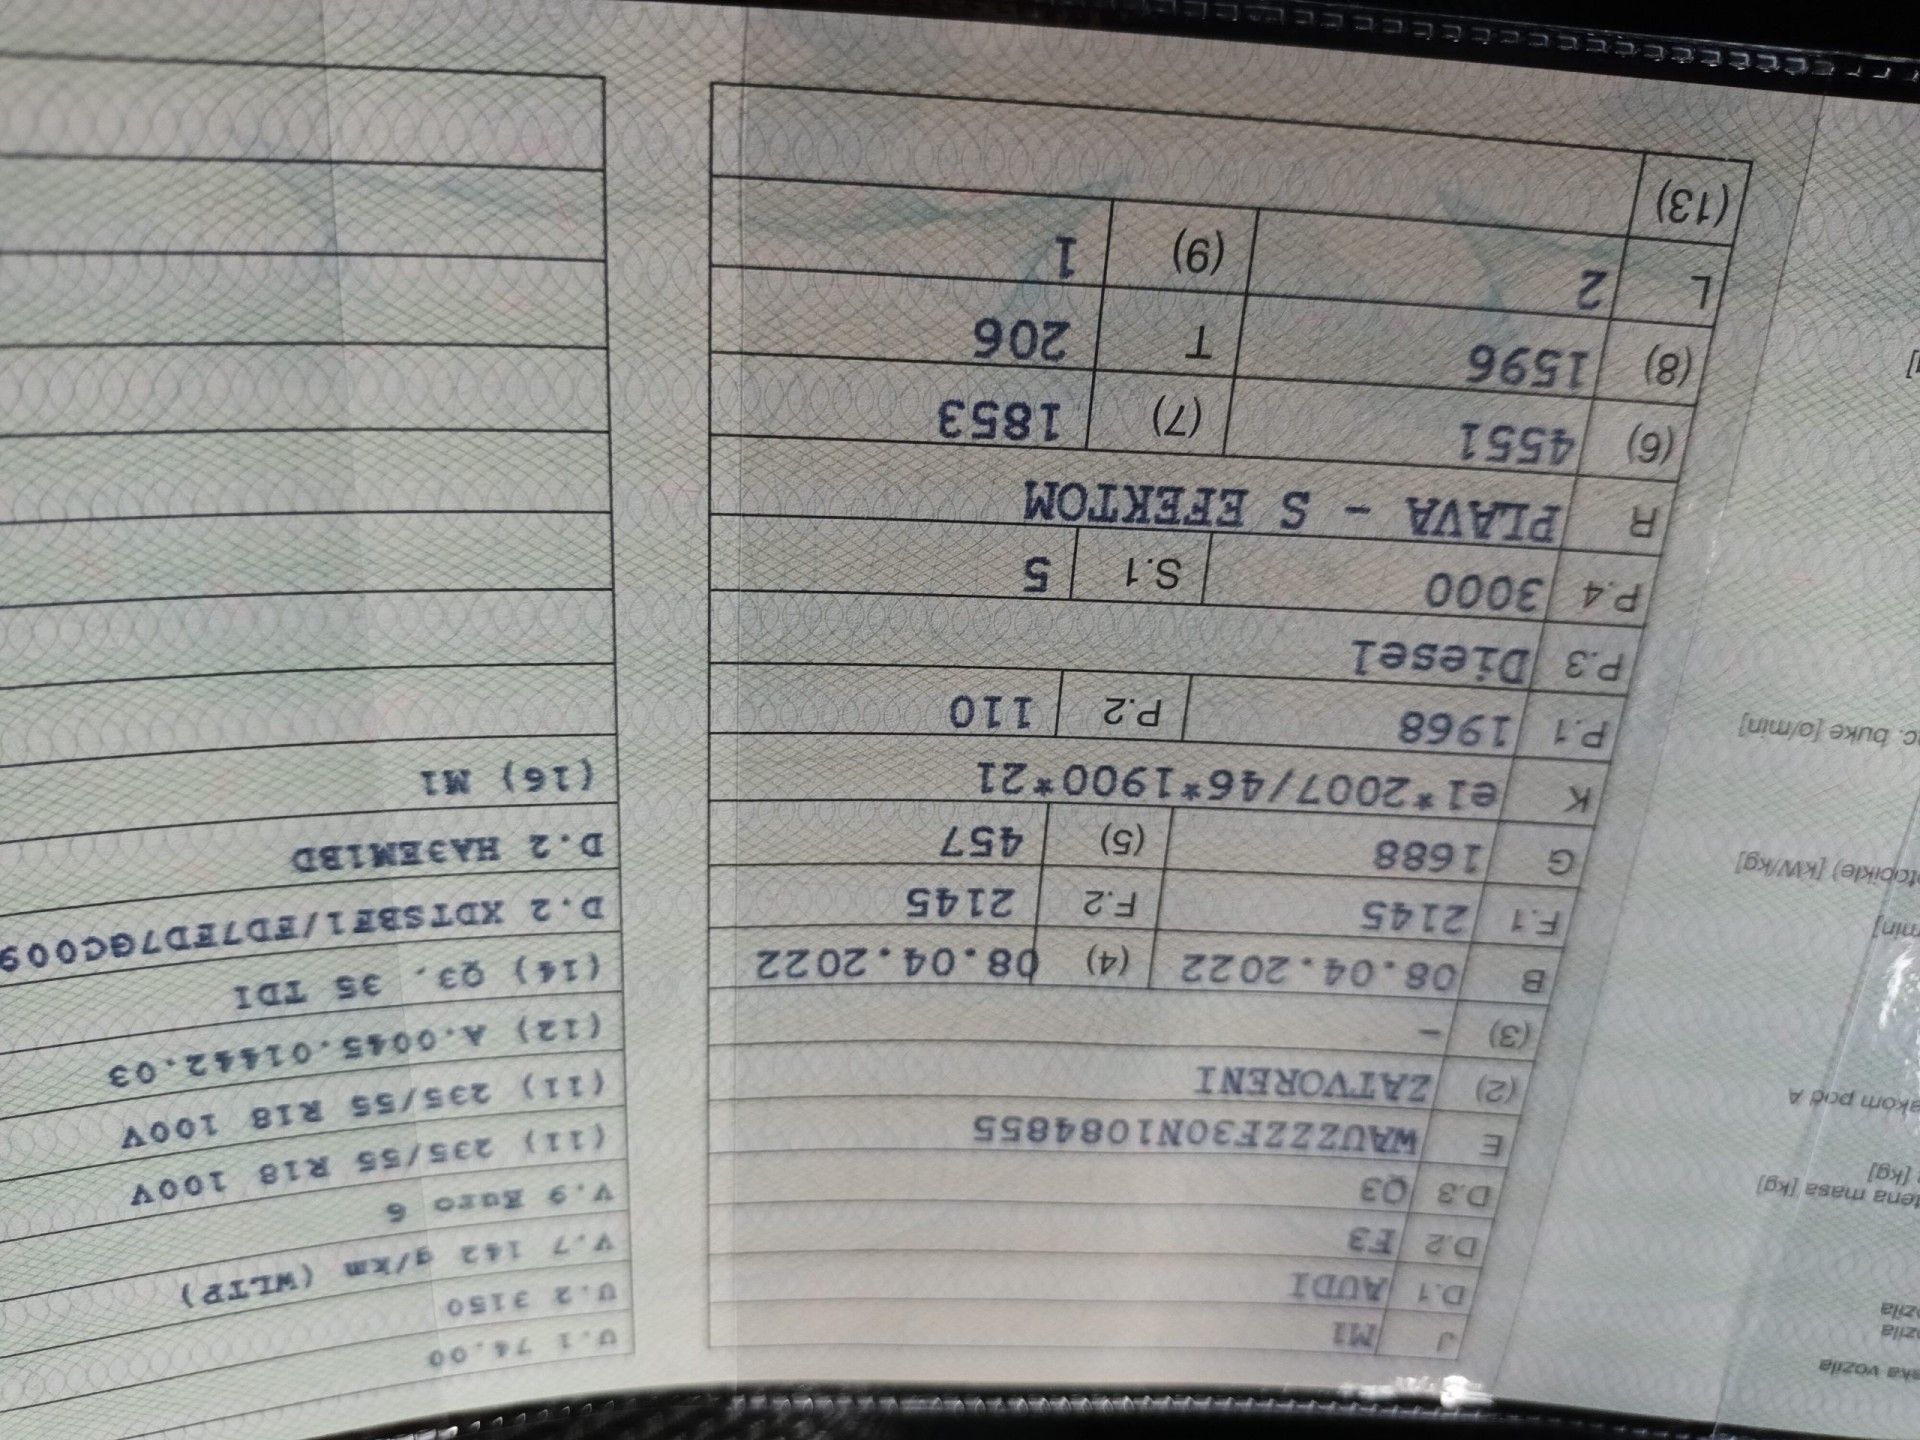 ska vozila
ozila
ozila
tena masa [kg]
[kg]
akom pod A
min]
tocikle) [kW/kg]
c. buke [o/min]
J M1
D.1 AUDI
D.2 F3
D.3 Q3
E WAUZZZF30N1084855
(2) ZATVORENI
(3) -
B 08.04.2022 (4) 08.04.2022
F.1 2145 F.2 2145
G 1688 (5) 457
K e1*2007/46*1900*21
P.1 1968 P.2 110
P.3 Diesel
P.4 3000 S.1 5
R PLAVA - S EFEKTOM
(6) 4551 (7) 1853
(8) 1596 T 206
L 2 (9) 1
(13)
U.1 74.00
U.2 3150
V.7 142 g/km (WLTP)
V.9 Euro 6
(11) 235/55 R18 100V
(11) 235/55 R18 100V
(12) A.0045.01442.03
(14) Q3, 35 TDI
D.2 XDTSBF1/FD7FD7GC009
D.2 HA3EM1BD
(16) M1